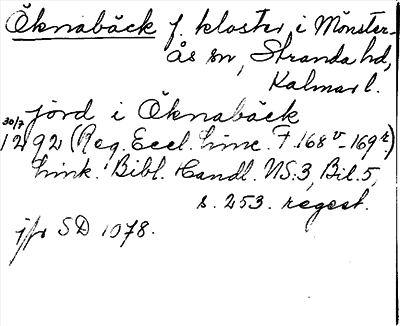 Öknabäck f. kloster, i Mönster-
ås sn, Stranda hd,
Kalmar l.
jord i Öknabäck
30/7 1292 (Reg. Eccl. Linc. F. 168v-169r.)
Link. Bibl. Handl. NS.3, Bil.5,
s. 253. regest.
jfr SD 1078.